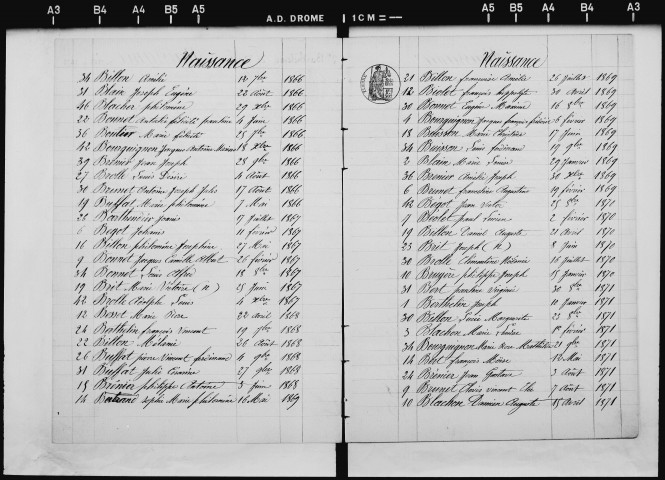 A3 B4 A4 B5 A5 A.D. DROME 1CM= A5 B5 A4 B4 A3
Naissance
34 Billon Amélie 12 7bre 1866
31 Blain Joseph Eugène 22 Août 1866
46 Blachon philomène 29 xbre 1866
22 Bonnet 4 Juin 1866
36 Boutier Marie félicité 25 7bre 1866
42 Bourguignon Jacques Antoine 18 xbre 1866
39 Brenier Jean Joseph 28 9bre 1866
27 Brolle Louis Désiré 4 Août 1866
30 Brunet Antoine Joseph Jules 17 Août 1866
19 Buffat Marie philomène 7 Mai 1866
21 Barthélemier 17 Juillet 1867
6 Begot 11 février 1867
16 Billon philomène Joséphine 27 Mai 1867
9 Bonnet Jacques Camille Albert 26 février 1867
34 Bonnet Louis Alfred 18 8bre 1867
19 Brit Marie Victoire (n) 25 Juin 1867
42 Brolle Adolphe Louis 4 xbre 1867
12 Marie Rose 22 Avril 1868
24 Berthelin françois Vincent 19 7bre 1868
22 Billon Mélanie 20 Août 1868
26 Buffat pierre Vincent ferdinand 4 9bre 1868
31 Buffat Julie 27 9bre 1868
15 Brénier philippe Antoine 3 Juin 1868
14 Bertrand Sophie Marie philomène 16 Mai 1869
Naissance
21 Billon françoise Amélie 26 Juillet 1869
12 Brolet françois hippolyte 30 Avril 1869
30 Bonnet Eugène Maxime 16 8bre 1869
4 Bourguignon Jacques françois frédéric 6 février 1869
18 Marie Christine 17 Juin 1869
34 Buisson Louis ferdinand 19 9bre 1869
2 Blain Marie Louise 29 Janvier 1869
36 Brenier Amélie Joseph 30 xbre 1869
6 Brunet Augustine 19 février 1869
42 Begot Jean Victor 25 8bre 1870
7 Brolet paul 2 février 1870
19 Brillon Daniel Auguste 21 Avril 1870
23 Brit Joseph (n) 8 Juin 1870
30 Brolle Clémentine Mélanie 16 Juillet 1870
10 Bruyère philippe Joseph 15 Janvier 1870
31 Virginie 30 8bre 1871
1 Berthelin Joseph 10 Janvier 1871
30 Billon Lucie Marguerite 23 8bre 1871
3 Blachon Marie Louise 1er février 1871
34 Bourguignon Marie Rose Mathilde 21 9bre 1871
14 françois Moïse 12 Mai 1871
24 Brénier Jean Gustave 3 Août 1871
9 Brunet vincent 7 Août 1871
10 Blachon Damien Auguste 15 Avril 1871